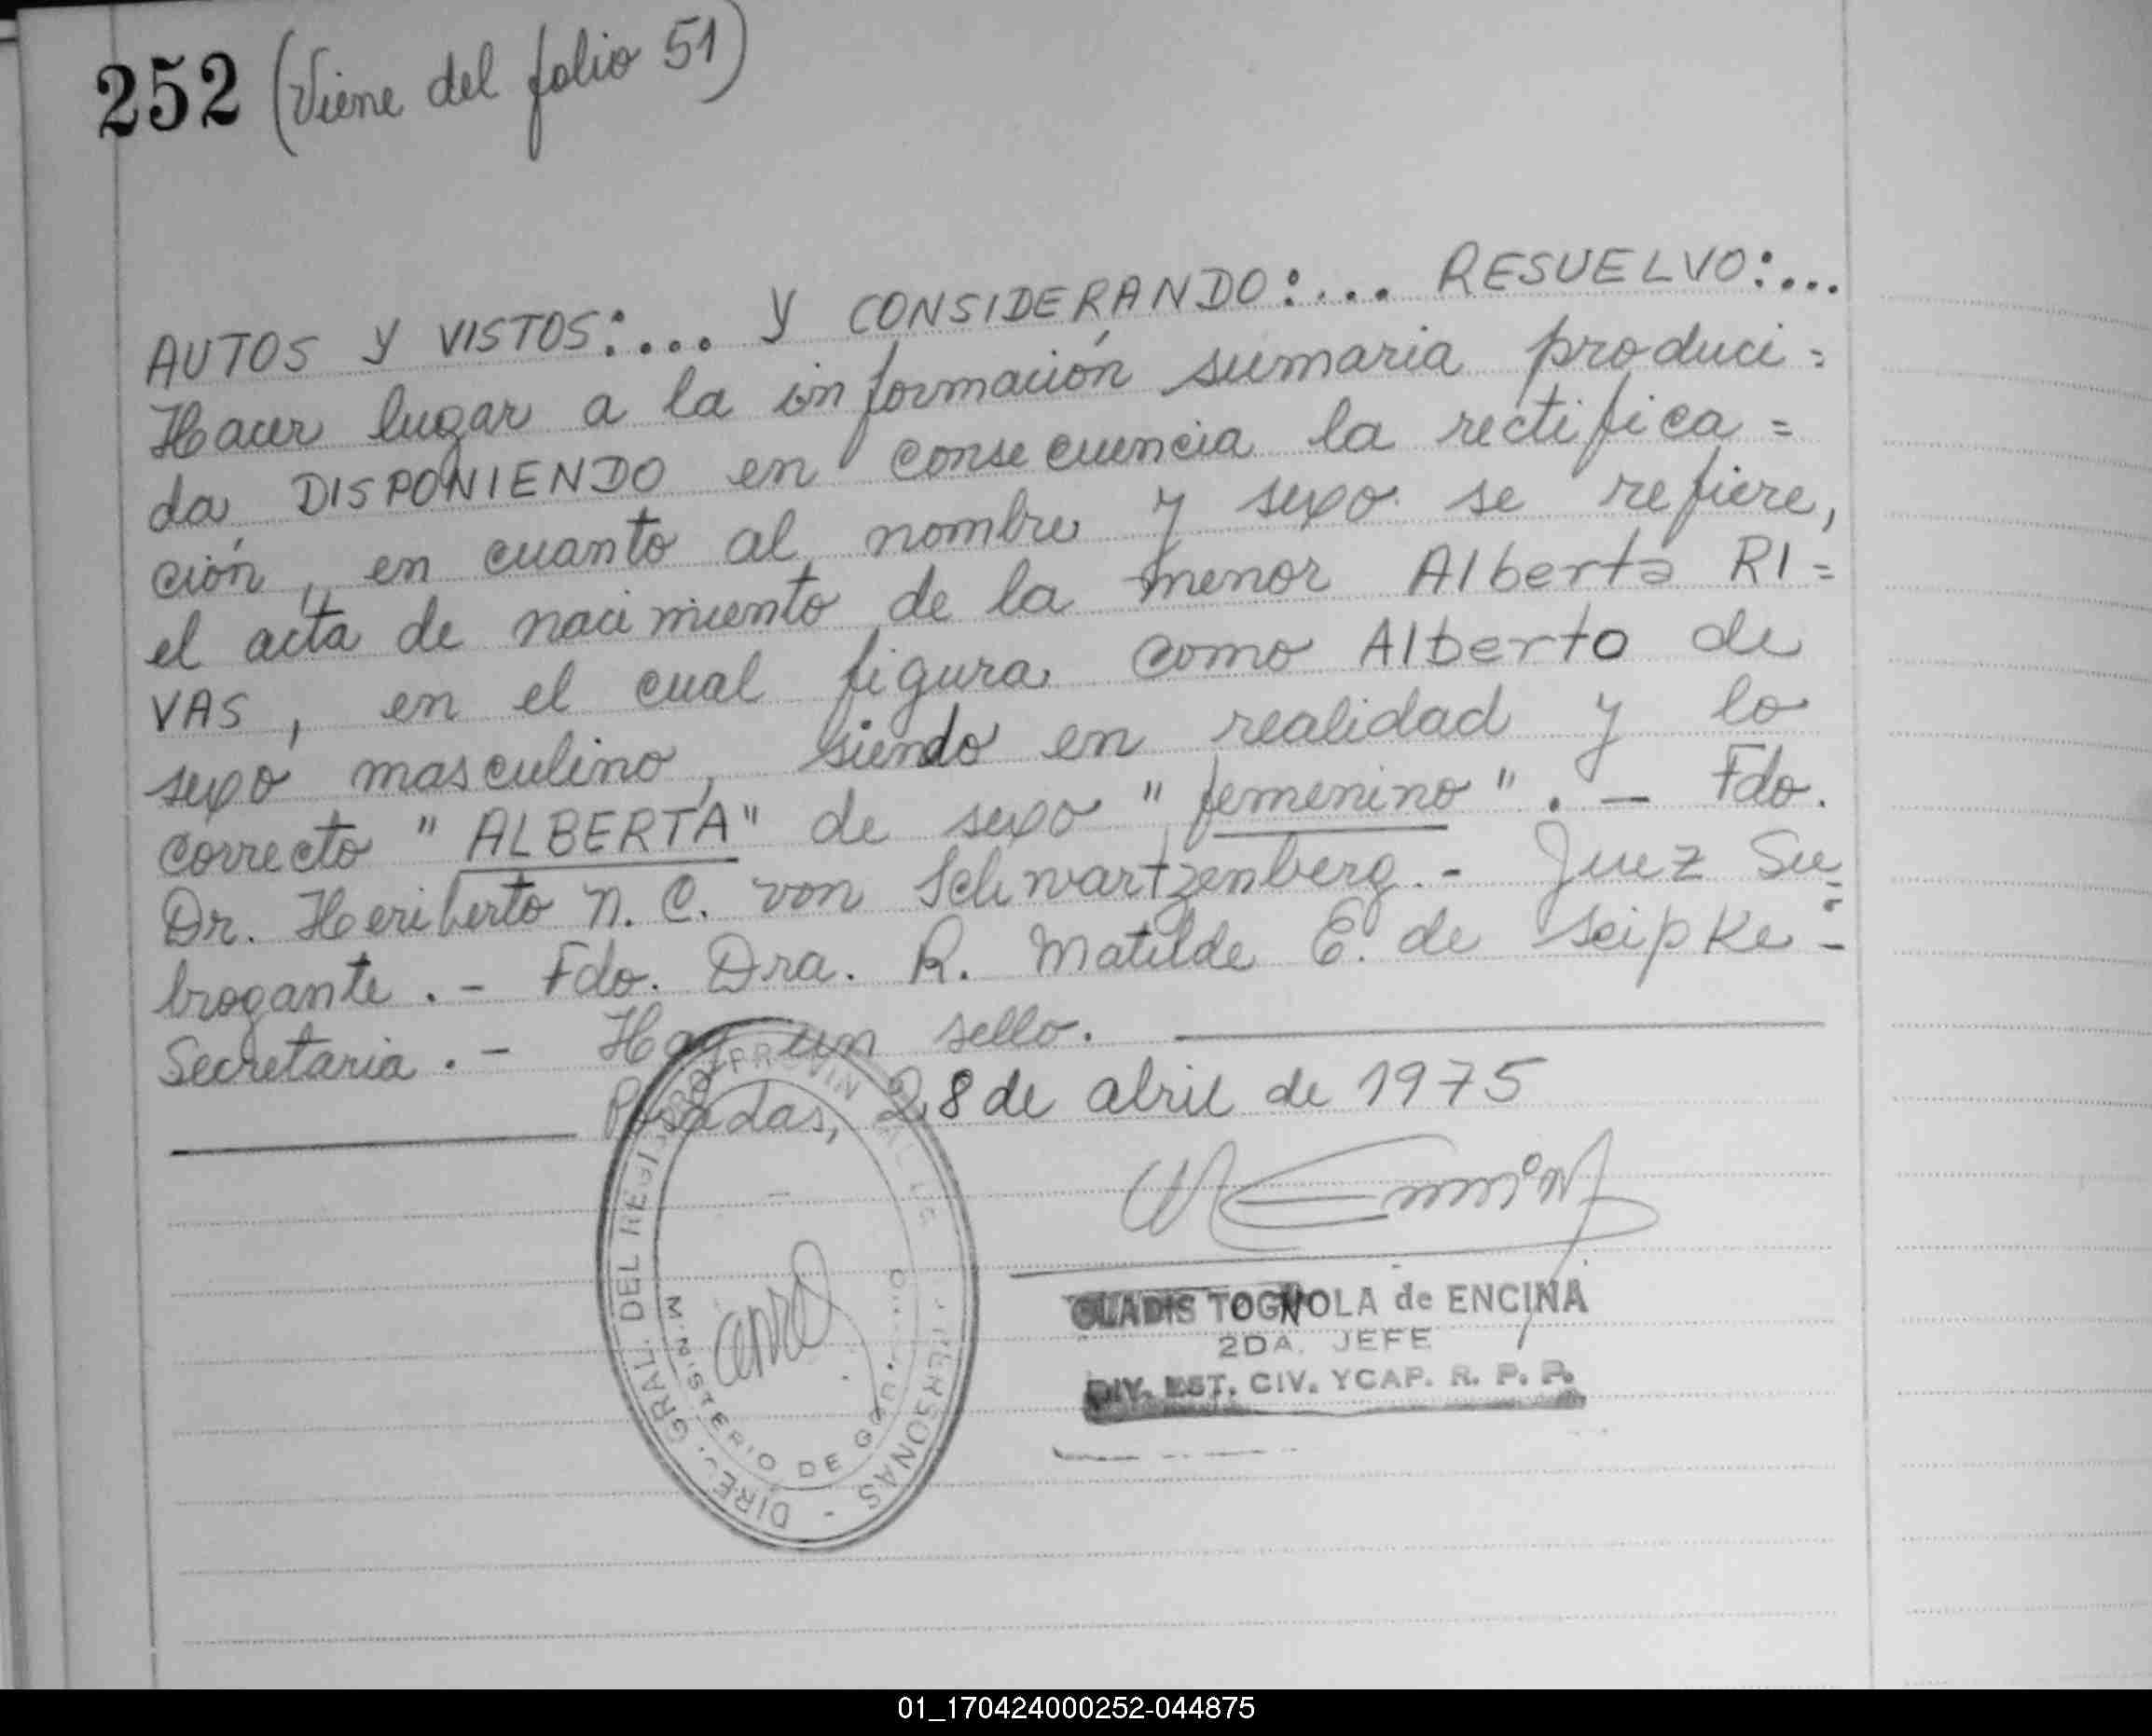 252 (Viene del folio 51)
AUTOS Y VISTOS:... Y CONSIDERANDO:... RESUELVO:...
Hacer lugar a la información sumaria produci=
da, DISPONIENDO en consecuencia la rectifica=
ción, en cuanto al nombre y sexo se refiere,
el acta de nacimiento de la menor Alberta RI=
VAS, en el cual figura como Alberto de
sexo masculino, siendo en realidad y lo
correcto "ALBERTA" de sexo "femenino".- Fdo.
Dr. Heriberto N. C. von Schwartzenberg.- Juez Su=
brogante.- Fdo. Dra. R. Matilde E. de Seipke-
Secretaria.- Hay un sello.
Posadas, 28 de abril de 1975
GLADIS TOGNOLA de ENCINA
2DA. JEFE
DIV. EST. CIV. YCAP. R. P. P.
GRAL. DEL PERSONAS
MINISTERIO DE
01_170424000252-044875